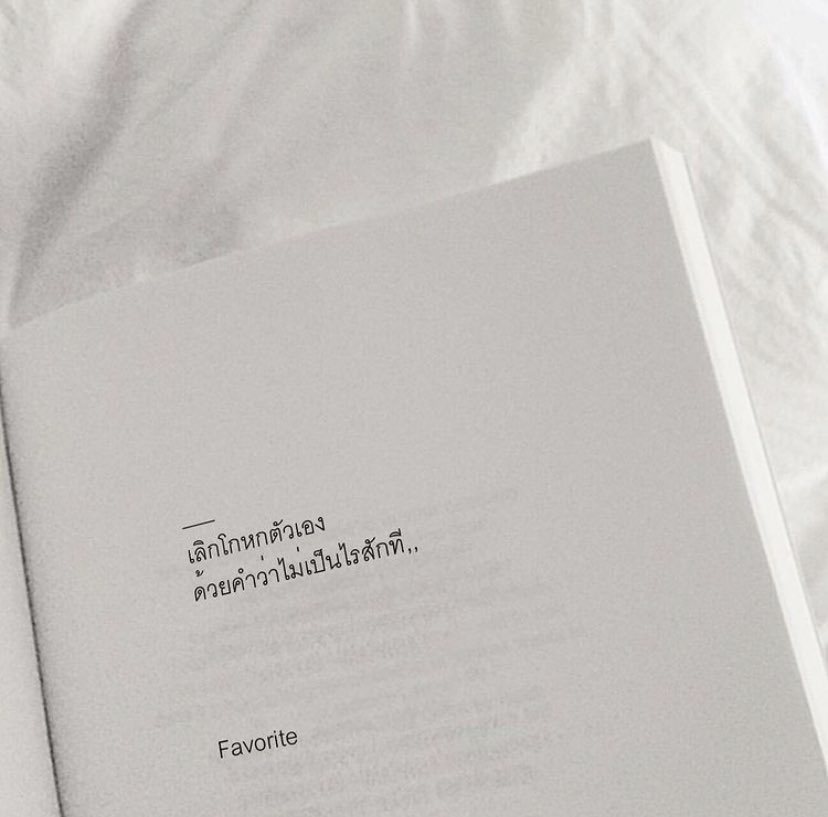 เลิกโกหกตัวเอง
ด้วยคำว่าไม่เป็นไรสักที,,
Favorite